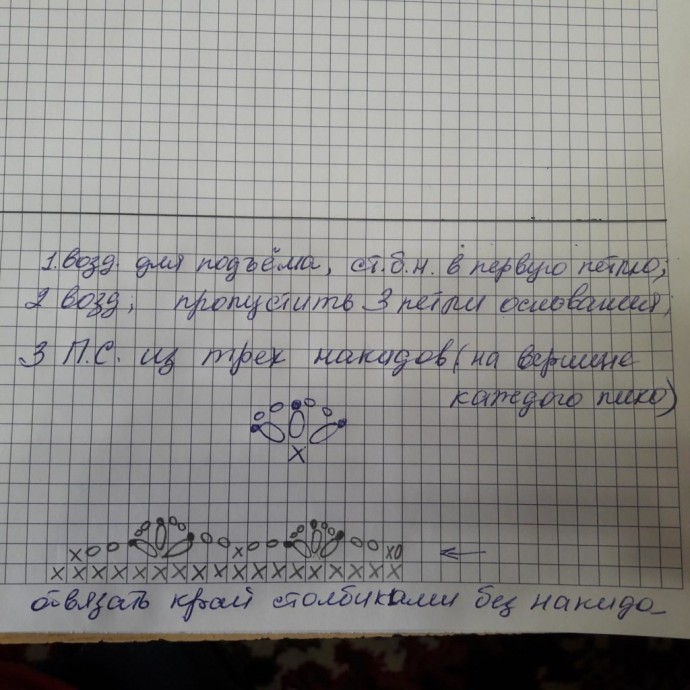 1. возд. для подъёма, ст.б.н. в первую петлю;
2 возд; пропустить 3 петли основания;
3 П.С. из трех накидов (на вершине
каждого пико)
отвязать край столбиками без накидо